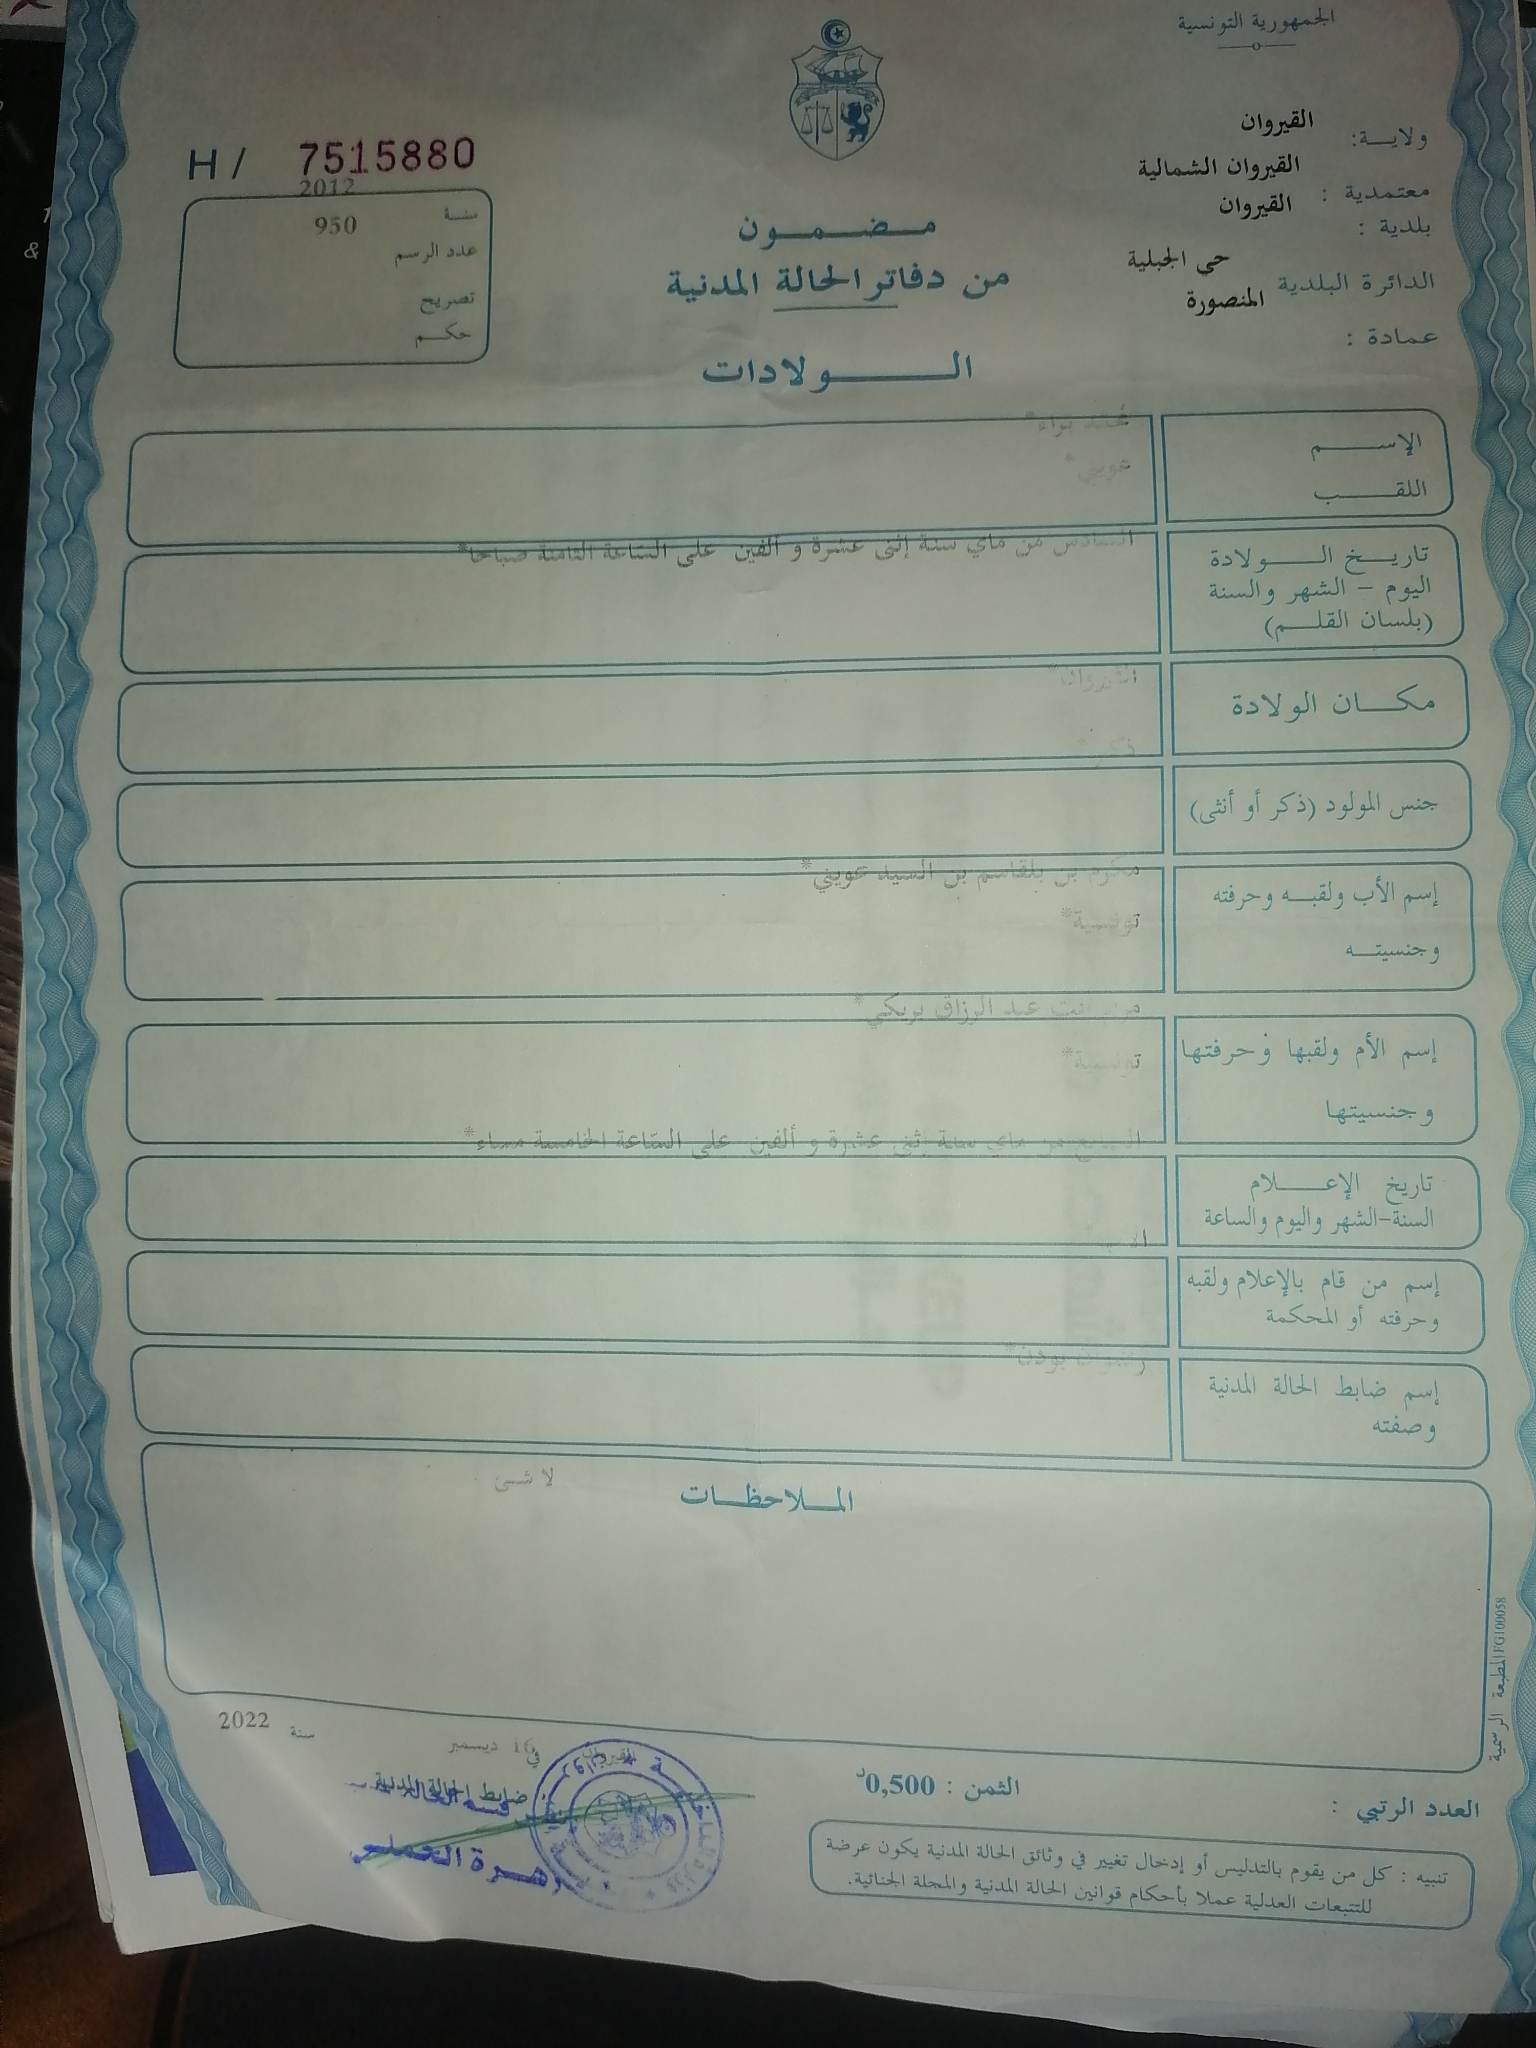 الجمهورية التونسية
ولايـــة: القيروان
معتمدية : القيروان الشمالية
بلدية : القيروان
الدائرة البلدية حي الجبلية
عمادة : المنصورة
H / 7515880
سنـة 2012
عدد الرسم 950
تصريح
حكـــم
مــضــمــون
من دفاتر الحالة المدنية
الـــــولادات
الإســـــم محمد براء*
اللقــــب عويني*
تاريـــخ الـــــولادة السادس من ماي سنة إثنى عشرة و ألفين على الساعة الثامنة صباحا*
اليوم – الشهر والسنة
(بلسان القلـــم)
مكـــان الولادة القيروان*
جنس المولود (ذكر أو أنثى) ذكر*
إسم الأب ولقبـــه وحرفته مكرم بن بلقاسم بن السيد عويني*
وجنسيتـــه تونسية*
إسم الأم ولقبها وحرفتها بنت عبد الرزاق بريكي*
وجنسيتها تونسية*
تاريخ الإعـــــلام السابع من ماي سنة إثنى عشرة و ألفين على الساعة الخامسة مساء*
السنة-الشهر واليوم والساعة
إسم من قام بالإعلام ولقبه
وحرفته أو المحكمة
إسم ضابط الحالة المدنية رضوان بودن*
وصفته
المـــلاحظـــات
لا شئ
المطبعة الرسمية FG100058
القيروان في 16 ديسمبر سنة 2022
ضابط الحالة المدنية
العدد الرتبي :
الثمن : 0,500د
تنبيه : كل من يقوم بالتدليس أو إدخال تغيير في وثائق الحالة المدنية يكون عرضة
للتتبعات العدلية عملا بأحكام قوانين الحالة المدنية والمجلة الجنائية.